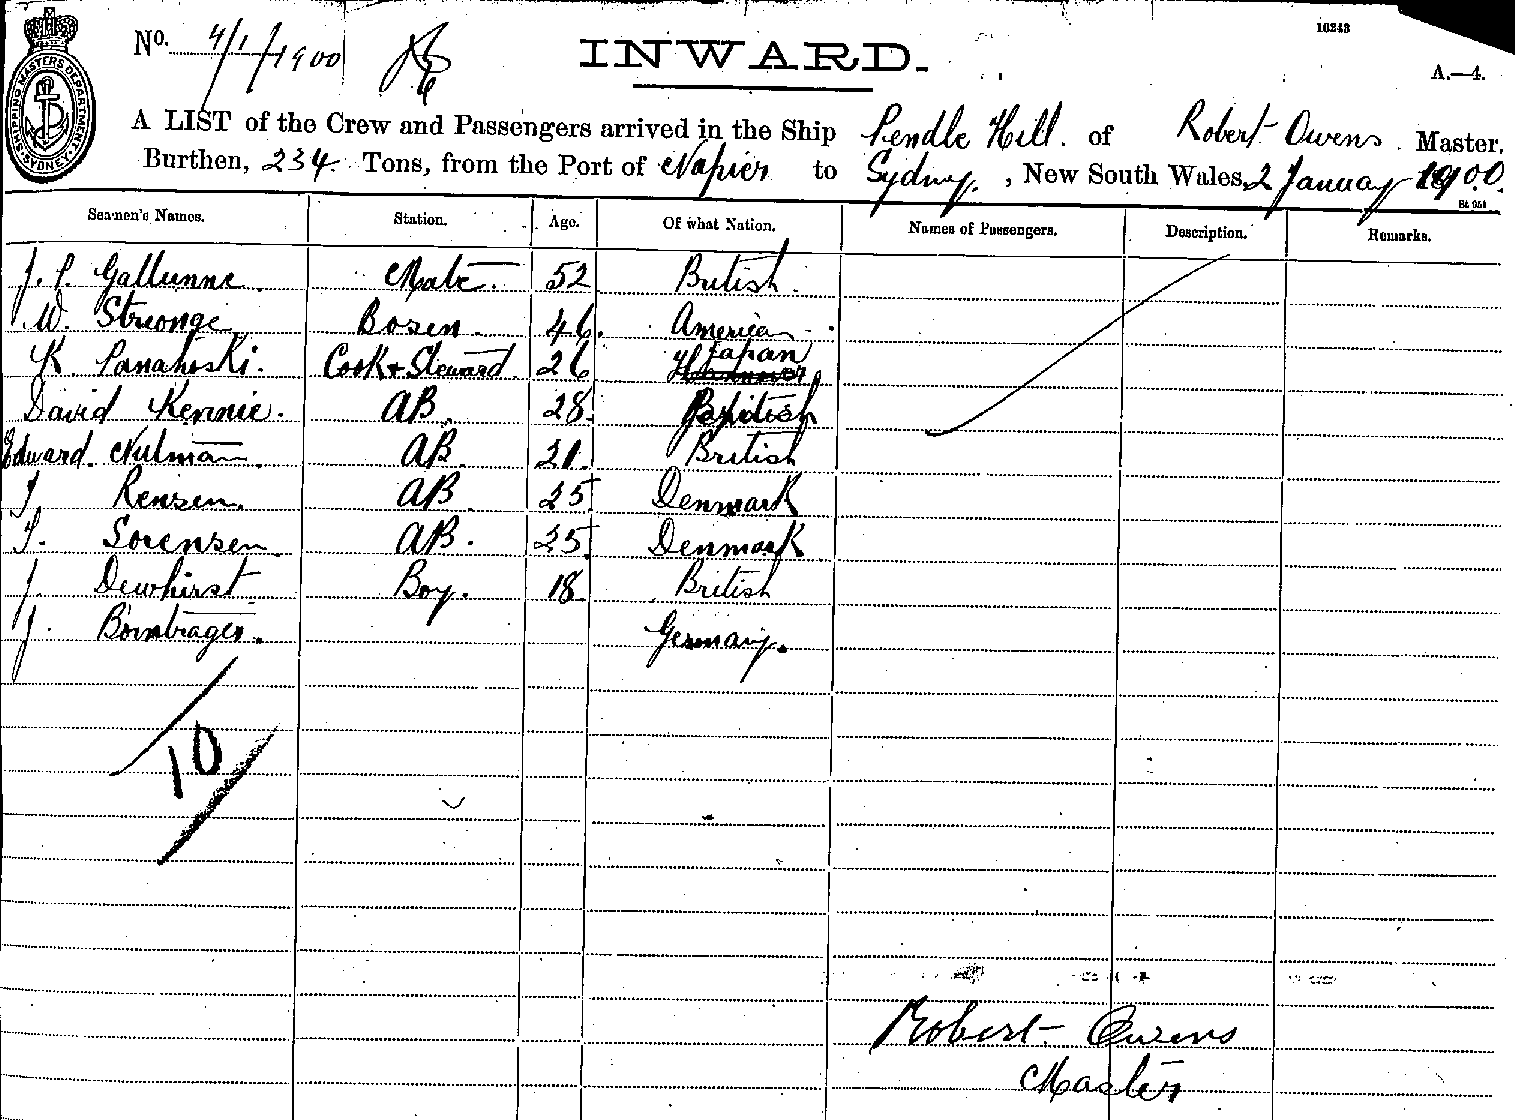 10343
No. 4/1/1900
INWARD.
A.—4.
SHIPPING MASTERS DEPARTMENT SYDNEY
A LIST of the Crew and Passengers arrived in the Ship Pendle Hill. of Robert Owens. Master,
Burthen, 234. Tons, from the Port of Napier to Sydney, New South Wales, 2 January 1900.
Seamen's Names. Station. Age. Of what Nation. Names of Passengers. Description. Remarks.
J. P. Gallunne. Mate. 52 British.
W. Stronge Bosen. 46. American.
K. Panahoski. Cook + Steward. 26 Japan
David Kennie. AB. 28. British
Edward. Nulman. AB. 21. British
Rensen. AB 25 Denmark
Sorensen. AB. 25. Denmark
J. Dewhirst Boy. 18. British
J. Bombrager. Germany.
10
Robert Owens
Master